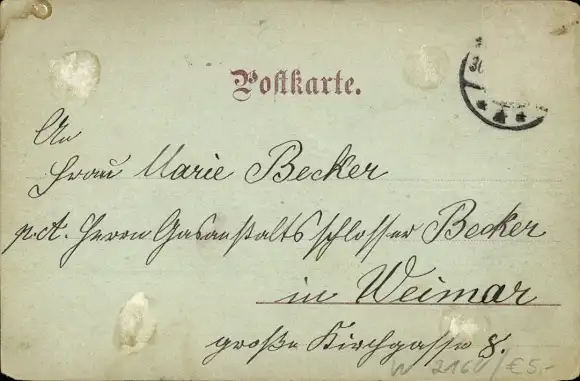 Postkarte.
30
An
Frau Marie Becker
p. A. Herrn Gasanstaltsschlosser Becker
in Weimar
große Kirchgasse 8.
W 2160 / € 5,-